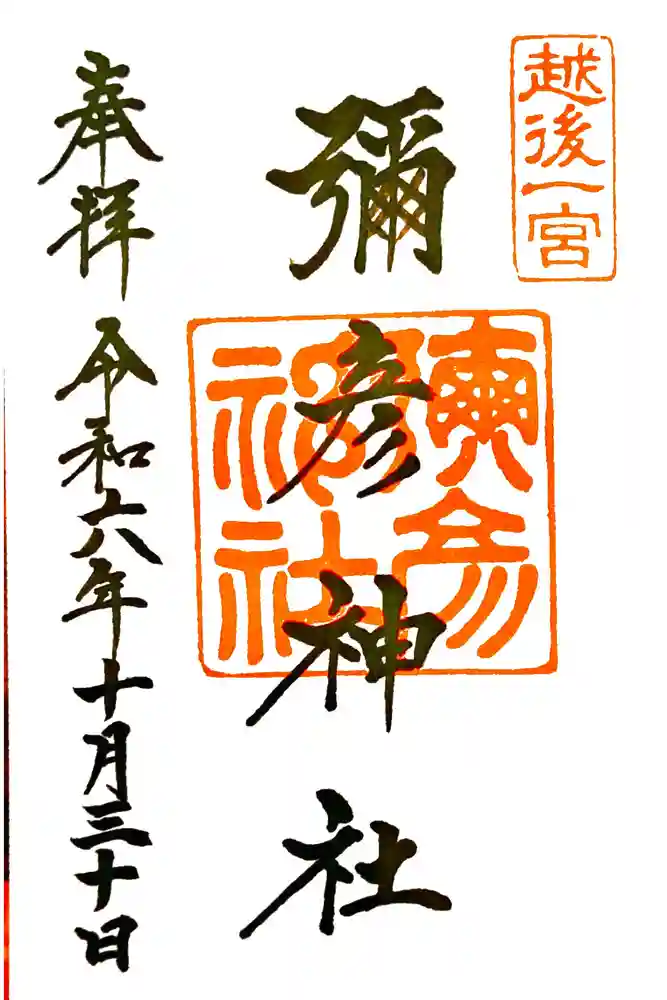 越後一宮
彌彦神社
彌彦神社
奉拝
令和六年十月三十日